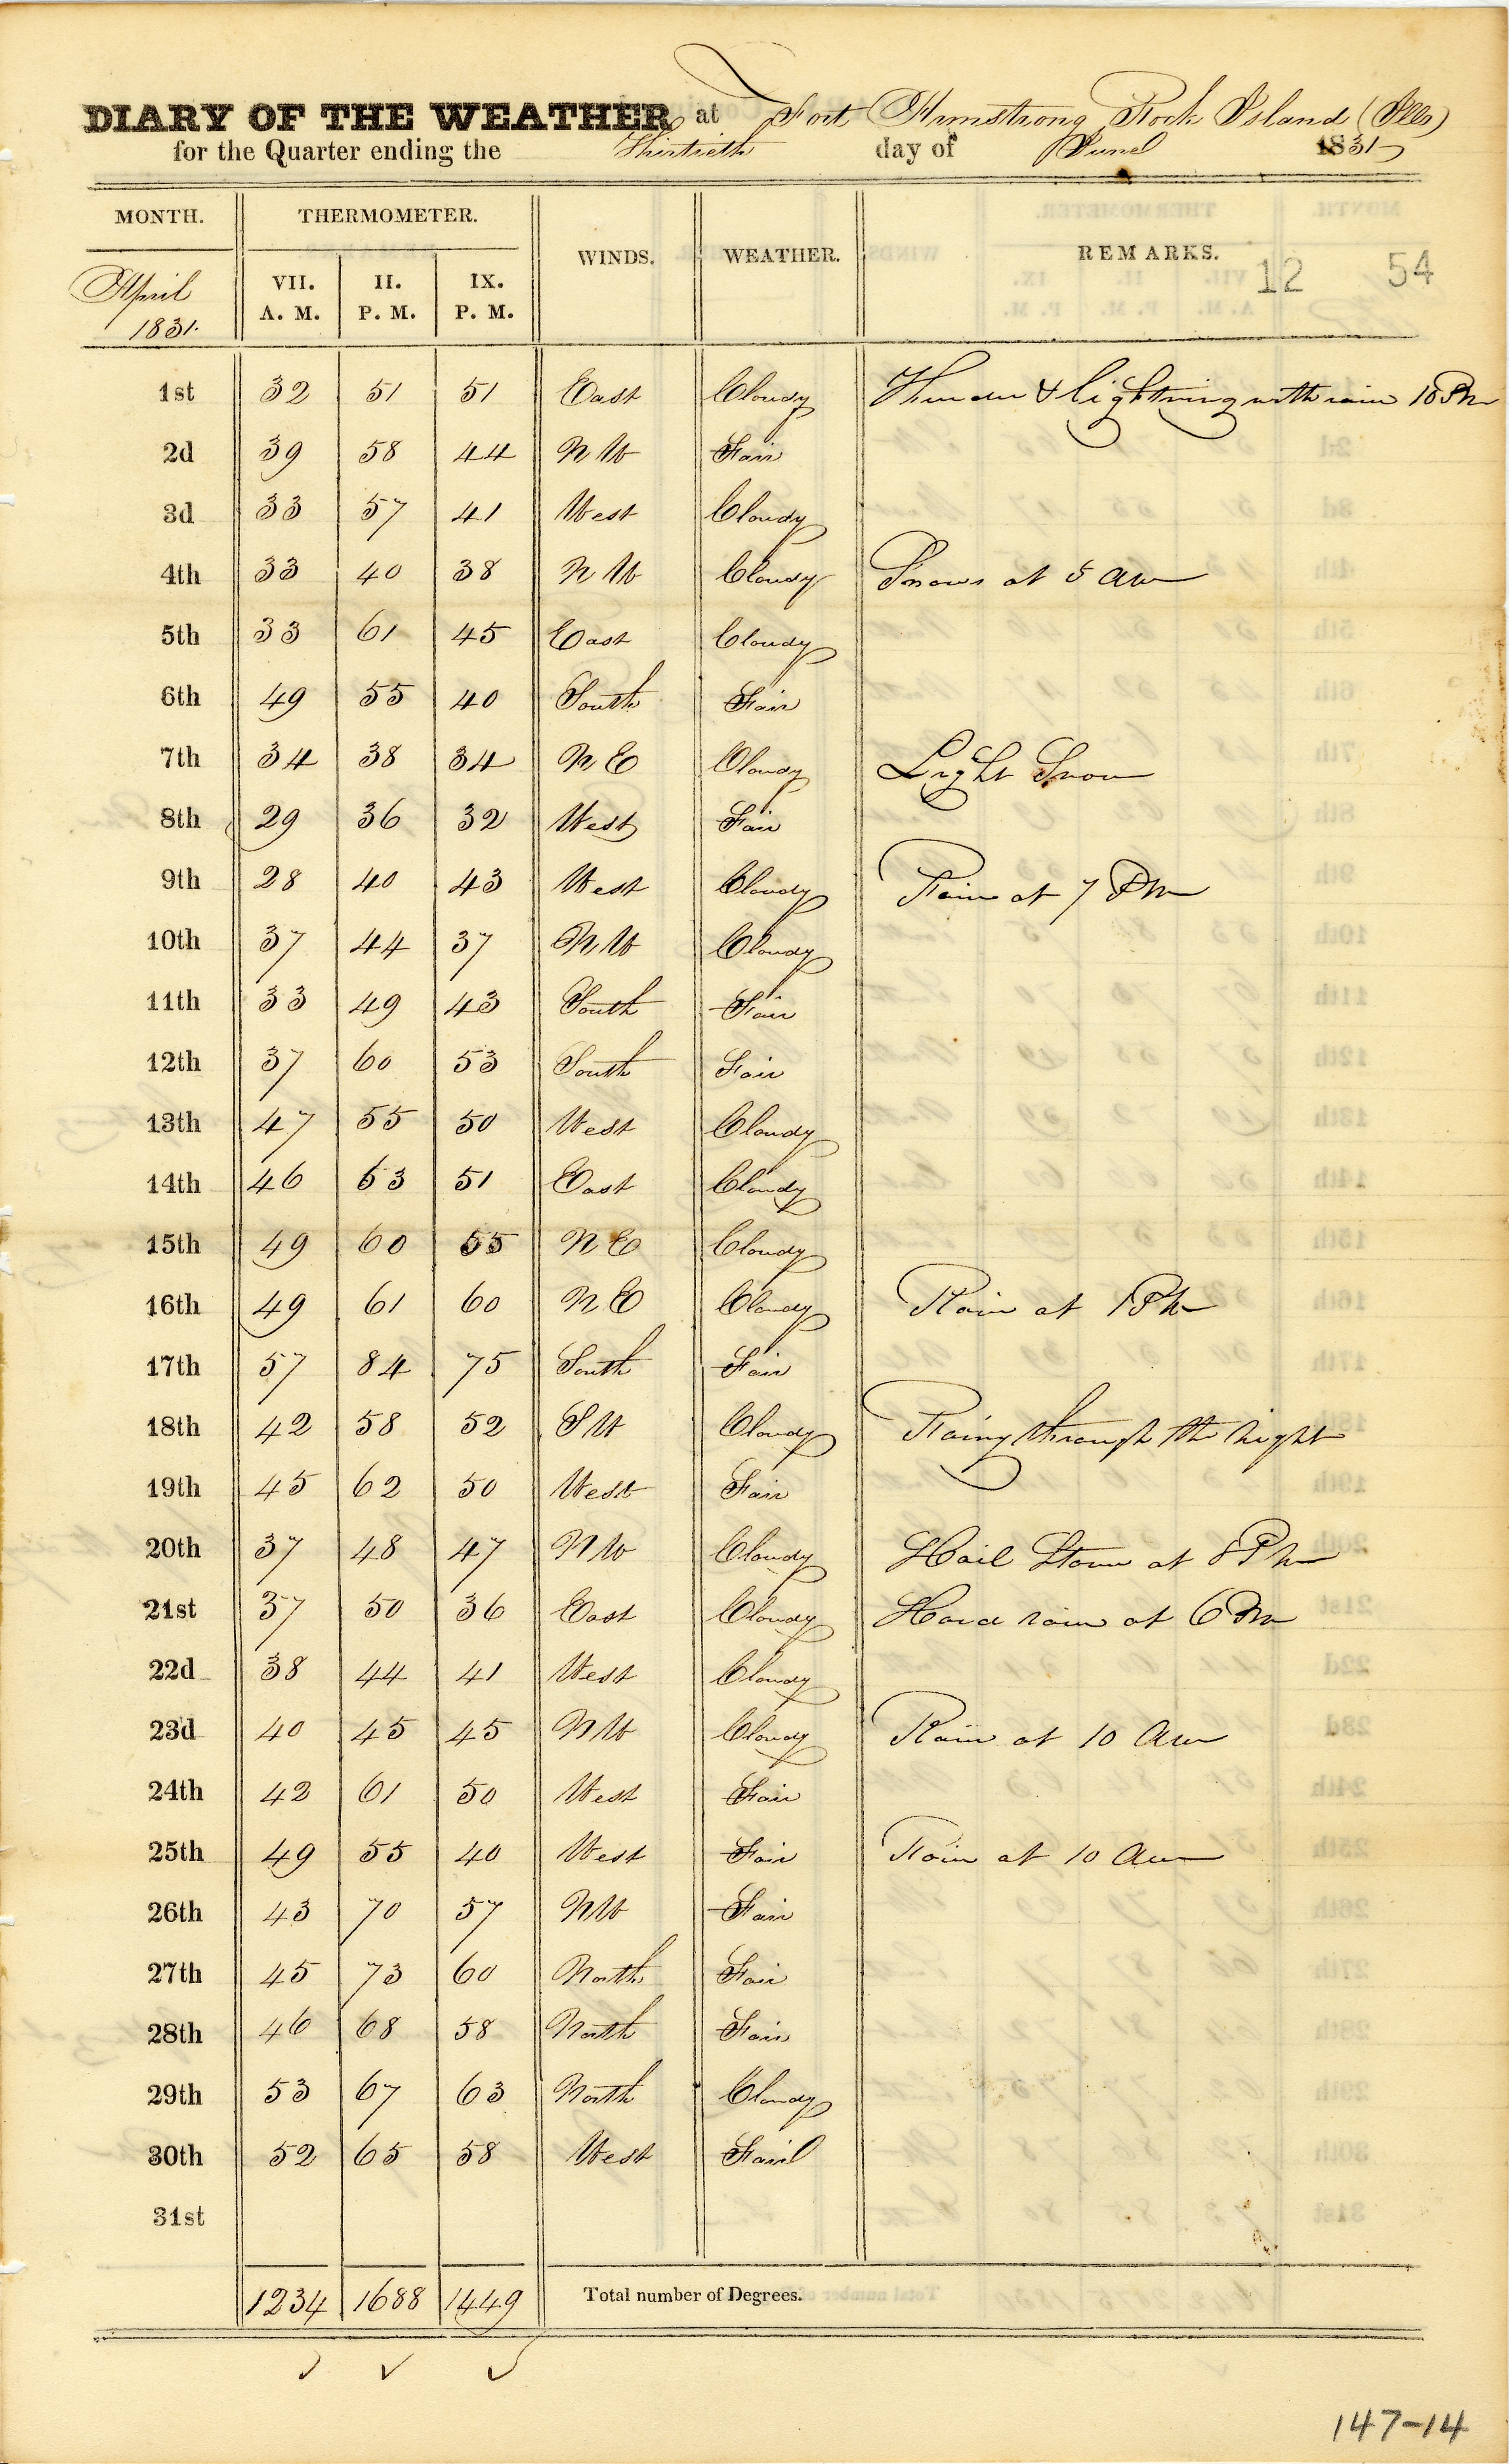 DIARY OF THE WEATHER at Fort Armstrong Rock Island (Ills)
for the Quarter ending the Thirtieth day of June 1831
MONTH. THERMOMETER. WINDS. WEATHER. REMARKS. 12 54
April 1831. VII. A. M. II. P. M. IX. P. M.
1st 32 51 51 East Cloudy Thunder & lightning with rain 10 Pm
2d 39 58 44 N W Fair
3d 33 57 41 West Cloudy
4th 33 40 38 N W Cloudy Snows at 5 am
5th 33 61 45 East Cloudy
6th 49 55 40 South Fair
7th 34 38 34 N E Cloudy Light Snow
8th 29 36 32 West Fair
9th 28 40 43 West Cloudy Rain at 7 Pm
10th 37 44 37 N W Cloudy
11th 33 49 43 South Fair
12th 37 60 53 South Fair
13th 47 55 50 West Cloudy
14th 46 63 51 East Cloudy
15th 49 60 55 N E Cloudy
16th 49 61 60 N E Cloudy Rain at 1 Pm
17th 57 84 75 South Fair
18th 42 58 52 S W Cloudy Rainy through the night
19th 45 62 50 West Fair
20th 37 48 47 N W Cloudy Hail Storm at 8 Pm
21st 37 50 36 East Cloudy Hard rain at 6 Pm
22d 38 44 41 West Cloudy
23d 40 45 45 N W Cloudy Rain at 10 am
24th 42 61 50 West Fair
25th 49 55 40 West Fair Rain at 10 am
26th 43 70 57 N W Fair
27th 45 73 60 North Fair
28th 46 68 58 North Fair
29th 53 67 63 North Cloudy
30th 52 65 58 West Fair
31st
1234 1688 1449 Total number of Degrees.
147-14